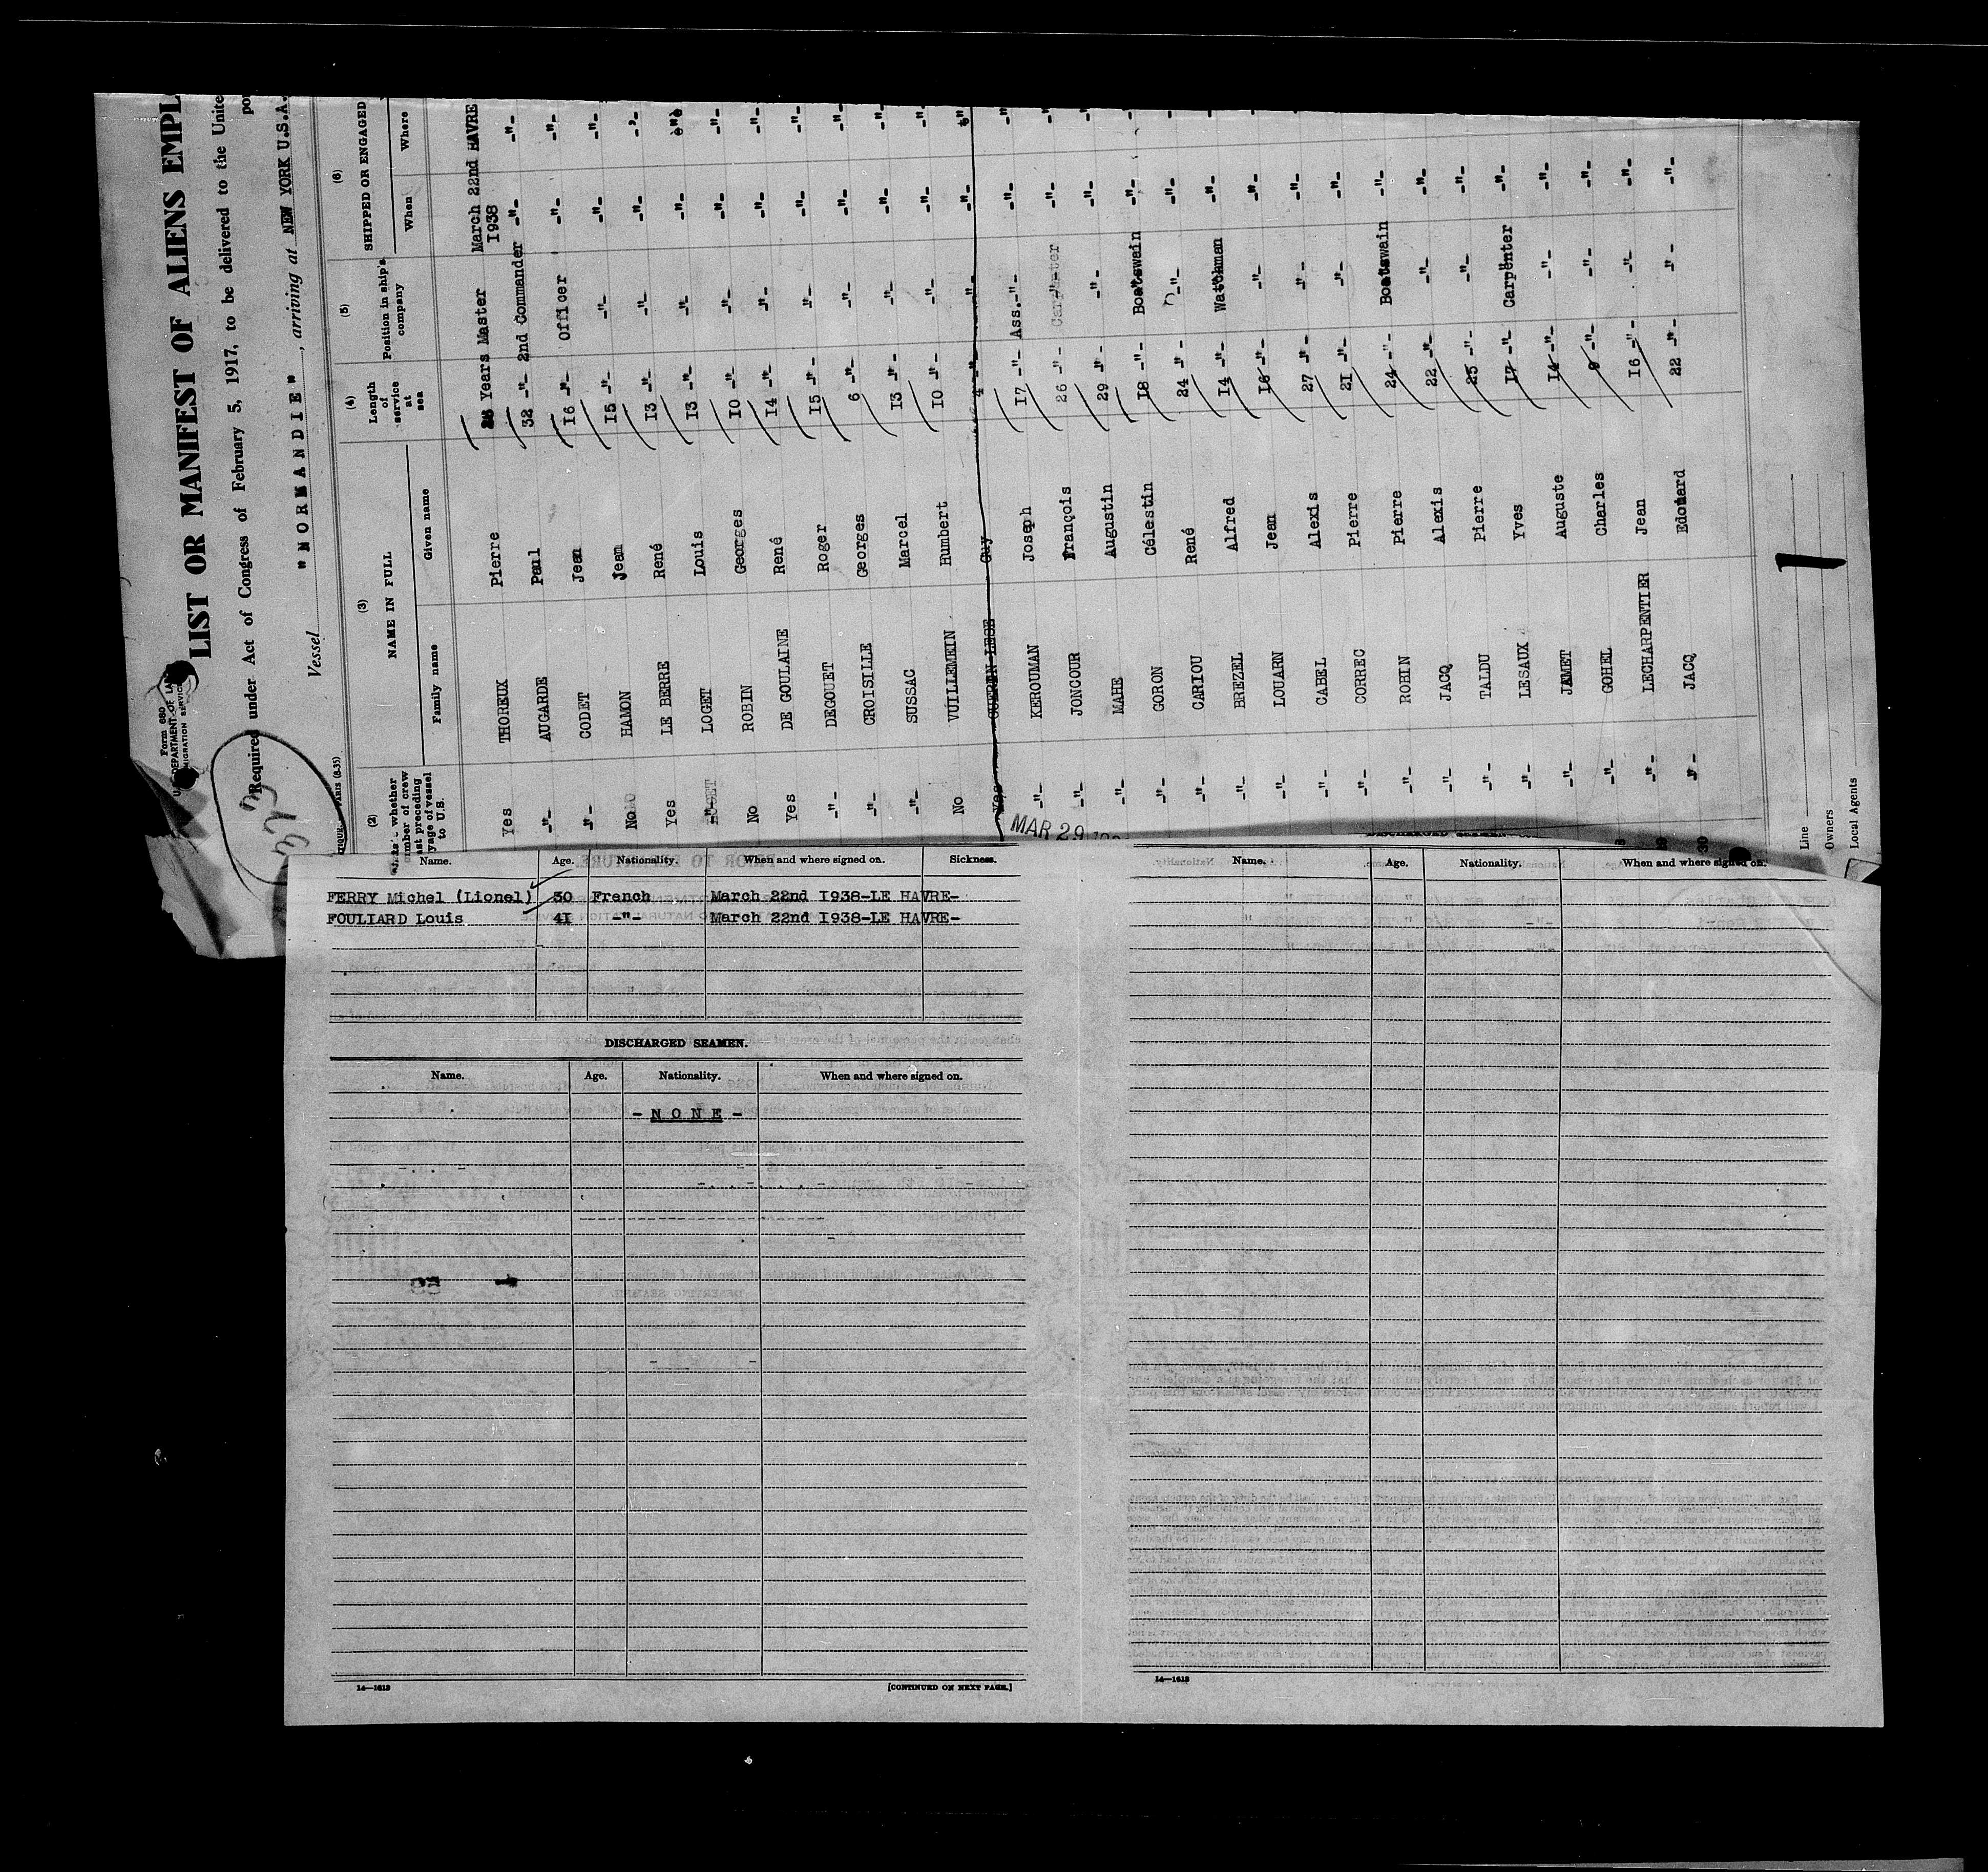 Form 680
LIST OR MANIFEST OF ALIENS EMPL
Required under Act of Congress of February 5, 1917, to be delivered to the Unite
Vessel "NORMANDIE", arriving at NEW YORK U.S.A.
(2) (3) (4) (5) (6)
NAME IN FULL Length of service at sea Position in ship's company SHIPPED OR ENGAGED
Family name Given name When Where
Yes THOREUX Pierre Years Master March 22nd 1938 HAVRE
-"- AUGARDE Paul 32 -"- 2nd Commander -"- -"-
-"- CODET Jean 16 -"- Officer -"- -"-
No HAMON Jean 15 -"- -"- -"- -"-
Yes LE BERRE René 13 -"- -"- -"- -"-
-"- LOGET Louis 13 -"- -"- -"- -"-
No ROBIN Georges 10 -"- -"- -"- -"-
Yes DE GOULAINE René 14 -"- -"- -"- -"-
-"- DEGOUET Roger 15 -"- -"- -"- -"-
-"- CROISILLE Georges 6 -"- -"- -"- -"-
-"- SUSSAC Marcel 13 -"- -"- -"- -"-
No VUILLEMEIN Humbert 10 -"- -"- -"- -"-
Yes Guy 4 -"- -"- -"-
-"- KEROUMAN Joseph 17 -"- Ass.-"- -"- -"-
-"- JONCOUR François 26 -"- Carpenter -"- -"-
-"- MAHE Augustin 29 -"- -"- -"- -"-
-"- GORON Célestin 18 -"- Boatswain -"- -"-
-"- CARIOU René 24 -"- -"- -"-
-"- BREZEL Alfred 14 -"- Watchman -"-
-"- LOUARN Jean 16 -"- -"- -"-
-"- CABEL Alexis 27 -"- -"- -"-
-"- CORREC Pierre 21 -"- -"- -"-
-"- ROBIN Pierre 24 -"- Boatswain -"-
-"- JACQ Alexis 22 -"- -"- -"-
-"- TALDU Pierre 25 -"- -"- -"-
-"- LESAUX Yves 17 -"- Carpenter -"-
-"- JAMET Auguste 14 -"- -"- -"-
-"- GOHEL Charles 9 -"- -"- -"-
-"- LECHARPENTIER Jean 16 -"- -"- -"-
-"- JACQ Edouard 22 -"- -"- -"-
MAR 29
Line
Owners
Local Agents
Name. Age. Nationality. When and where signed on. Sickness.
FERRY Michel (Lionel) 30 French March 22nd 1938-LE HAVRE-
FOULIARD Louis 41 -"- March 22nd 1938-LE HAVRE-
DISCHARGED SEAMEN.
Name. Age. Nationality. When and where signed on.
- N O N E -
14—1613 [CONTINUED ON NEXT PAGE.]
Name. Age. Nationality. When and where signed on.
14—1613